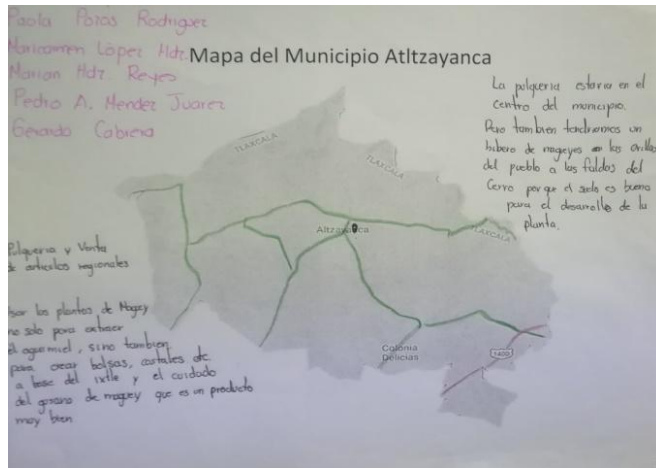 Paola Poras Rodriguez
Maricarmen López Hdz.
Marian Hdz. Reyes
Pedro A. Mendez Juarez
Gerardo Cabrera
Mapa del Municipio Atltzayanca
La pulqueria estaria en el
centro del municipio.
Pero tambien tendriamos un
bibero de mageyes en las orillas
del pueblo a las faldas del
Cerro porque el suelo es bueno
para el desarrollo de la
planta.
TLAXCALA
TLAXCALA
TLAXCALA
Altzayanca
Colonia
Delicias
1400
Pulqueria y Venta
de articulos regionales
las plantas de Magey
no solo para extraer
el aguamiel, sino tambien
para crear bolsas, costales de
a base del ixtle y el cuidado
del gusano de maguey que es un producto
muy bien